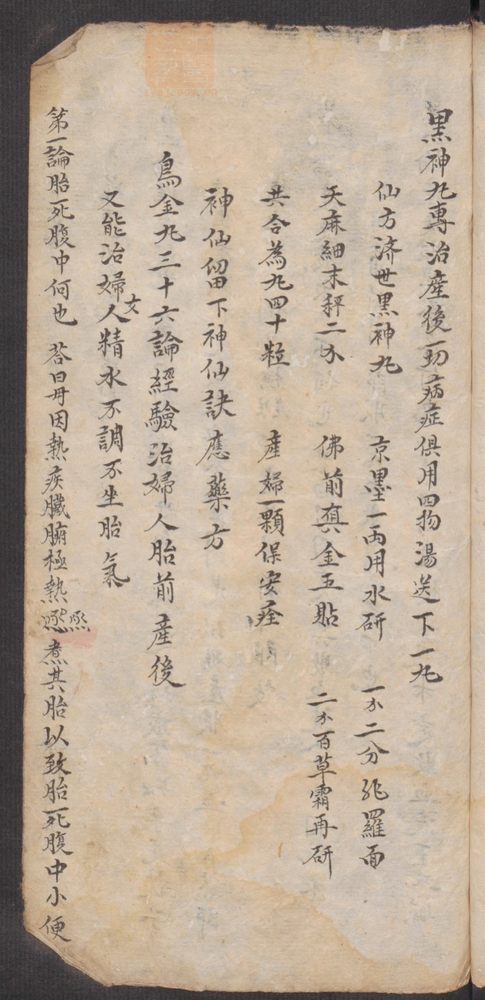 黑神丸專治產後一切病症俱用四物湯送下一丸
仙方济世黑神丸 京墨一両用水研 一个二分飛羅面
天麻細末秤二个 佛前真金五貼 二个百草霜再研
共合為丸四十粒 產婦一顆保安痊
神仙留下神仙訣應藥方
烏金丸三十六論經驗治婦人胎前產後
又能治婦人精水不調不坐胎氣
第一論胎死腹中何也 荅曰毋因熱疾臟腑極熱煮其胎以致胎死腹中小便